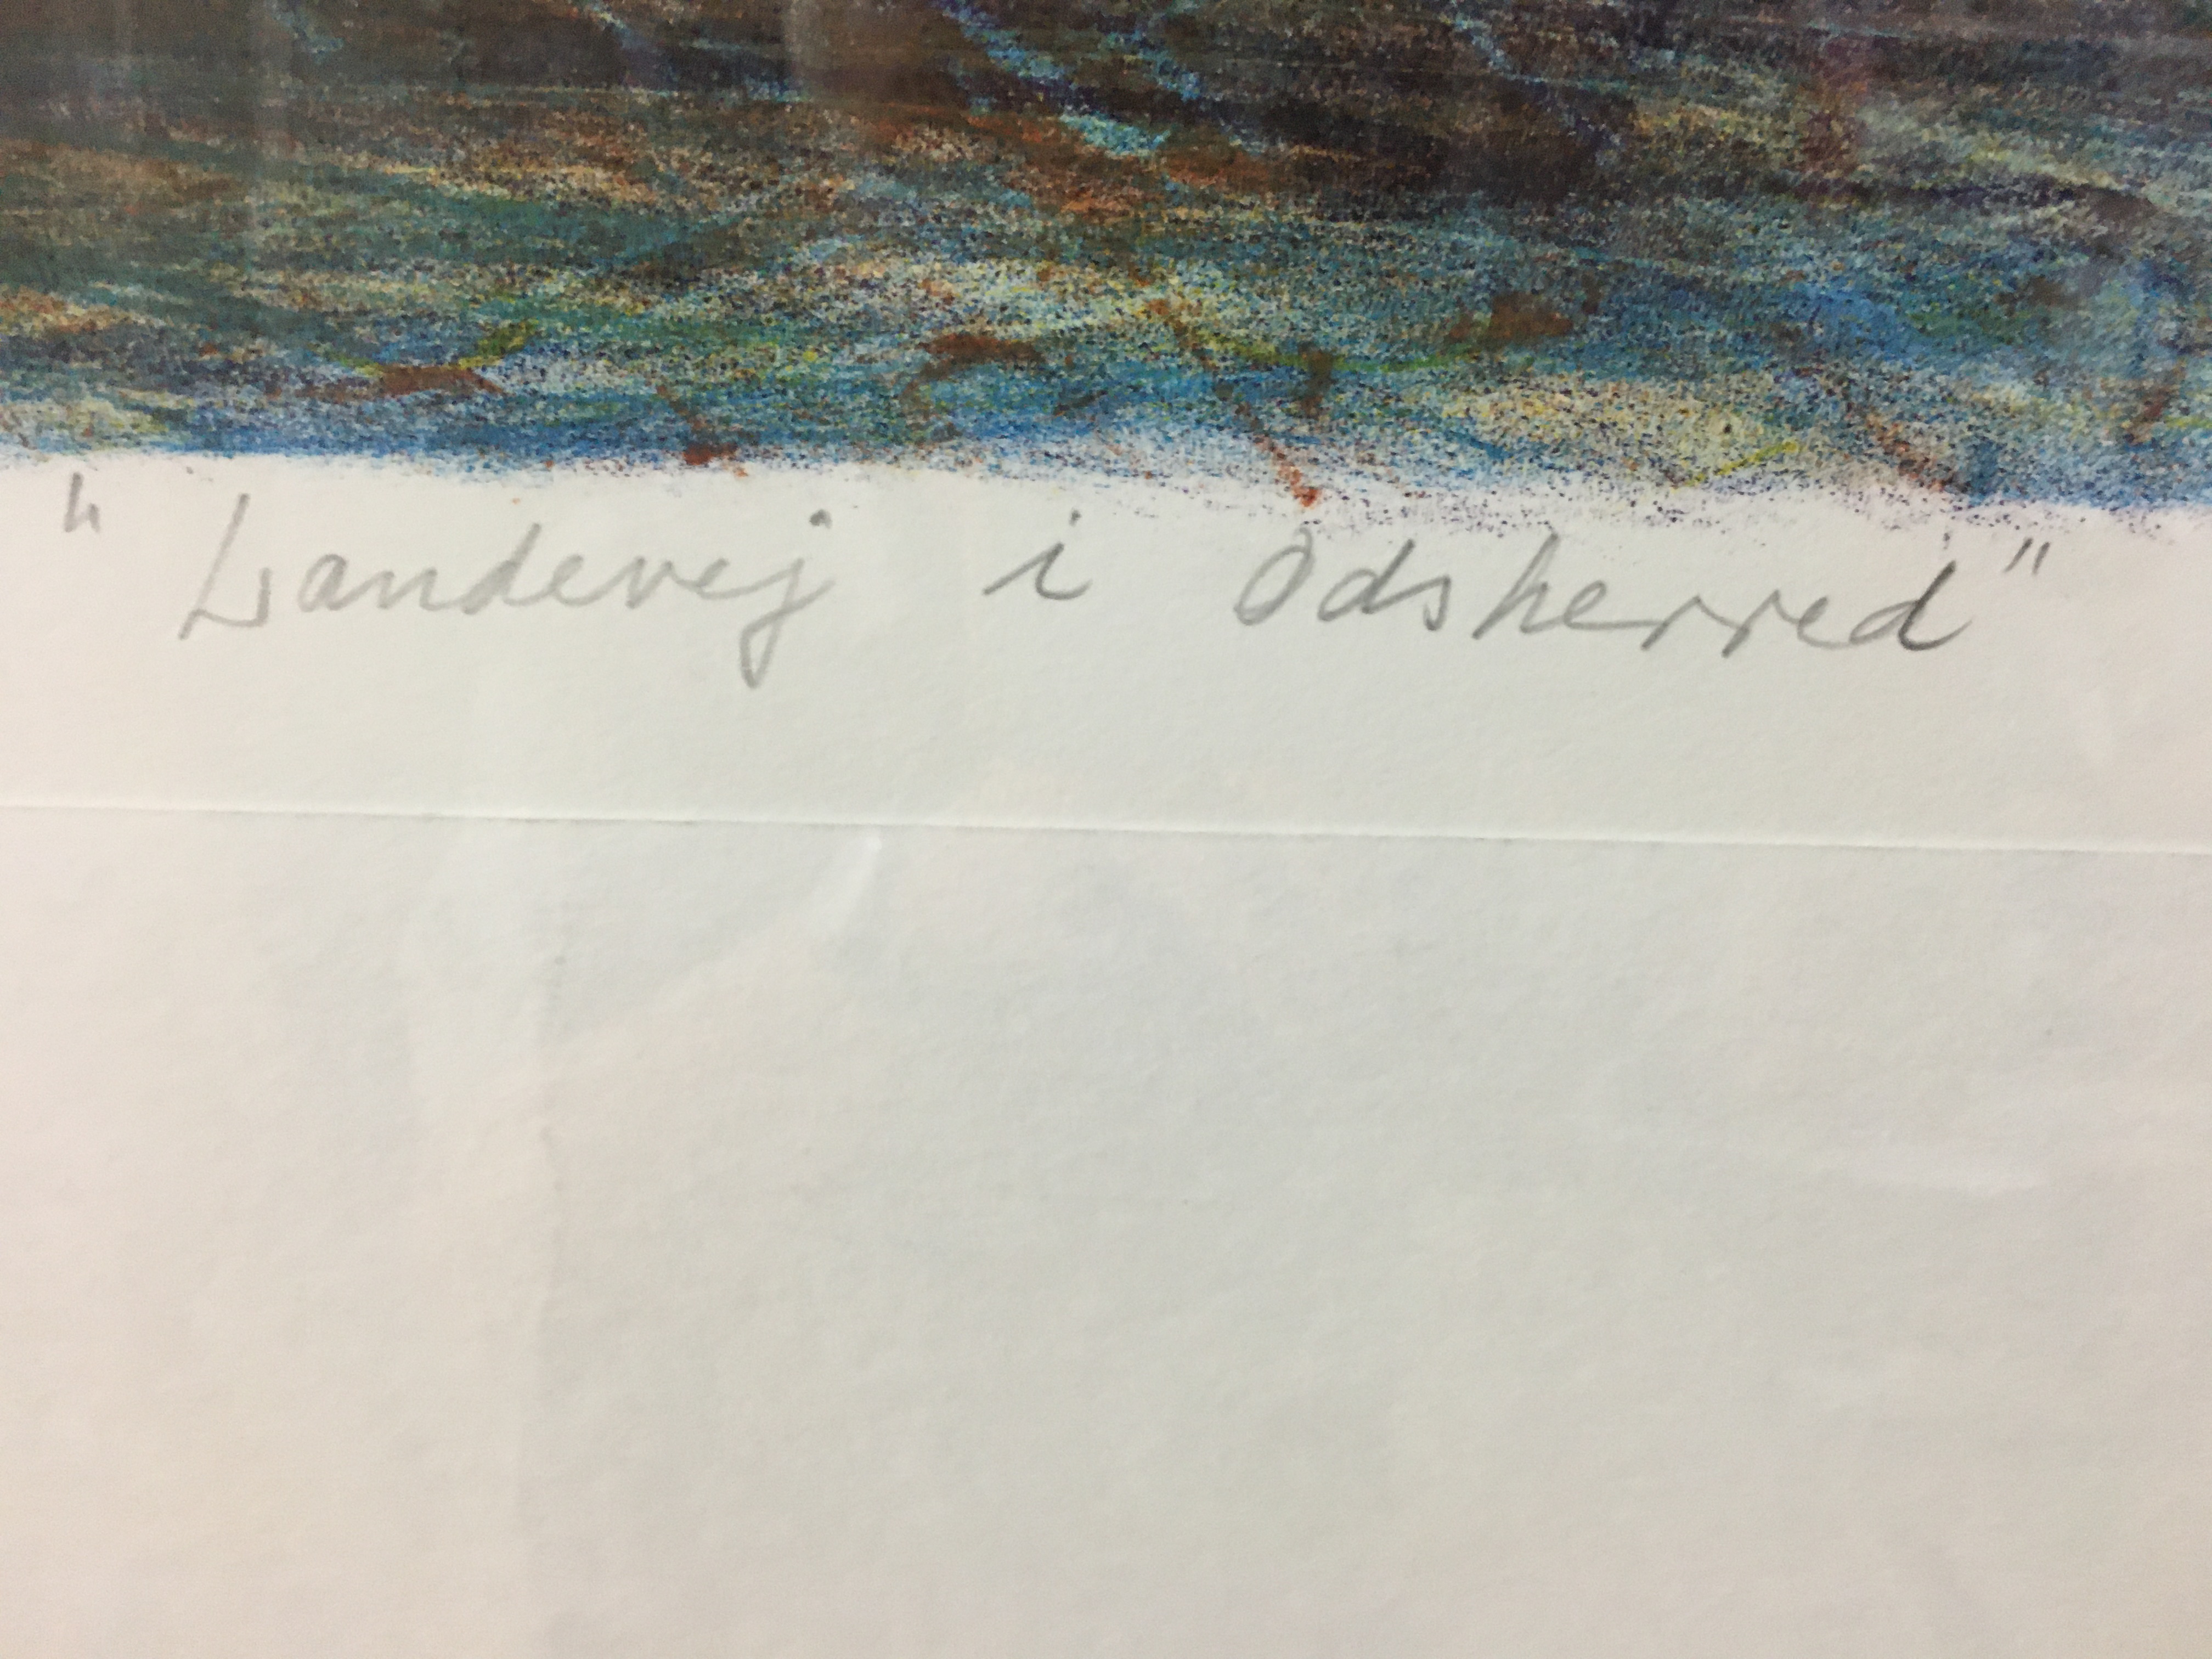 "Landevej i Odsherred"